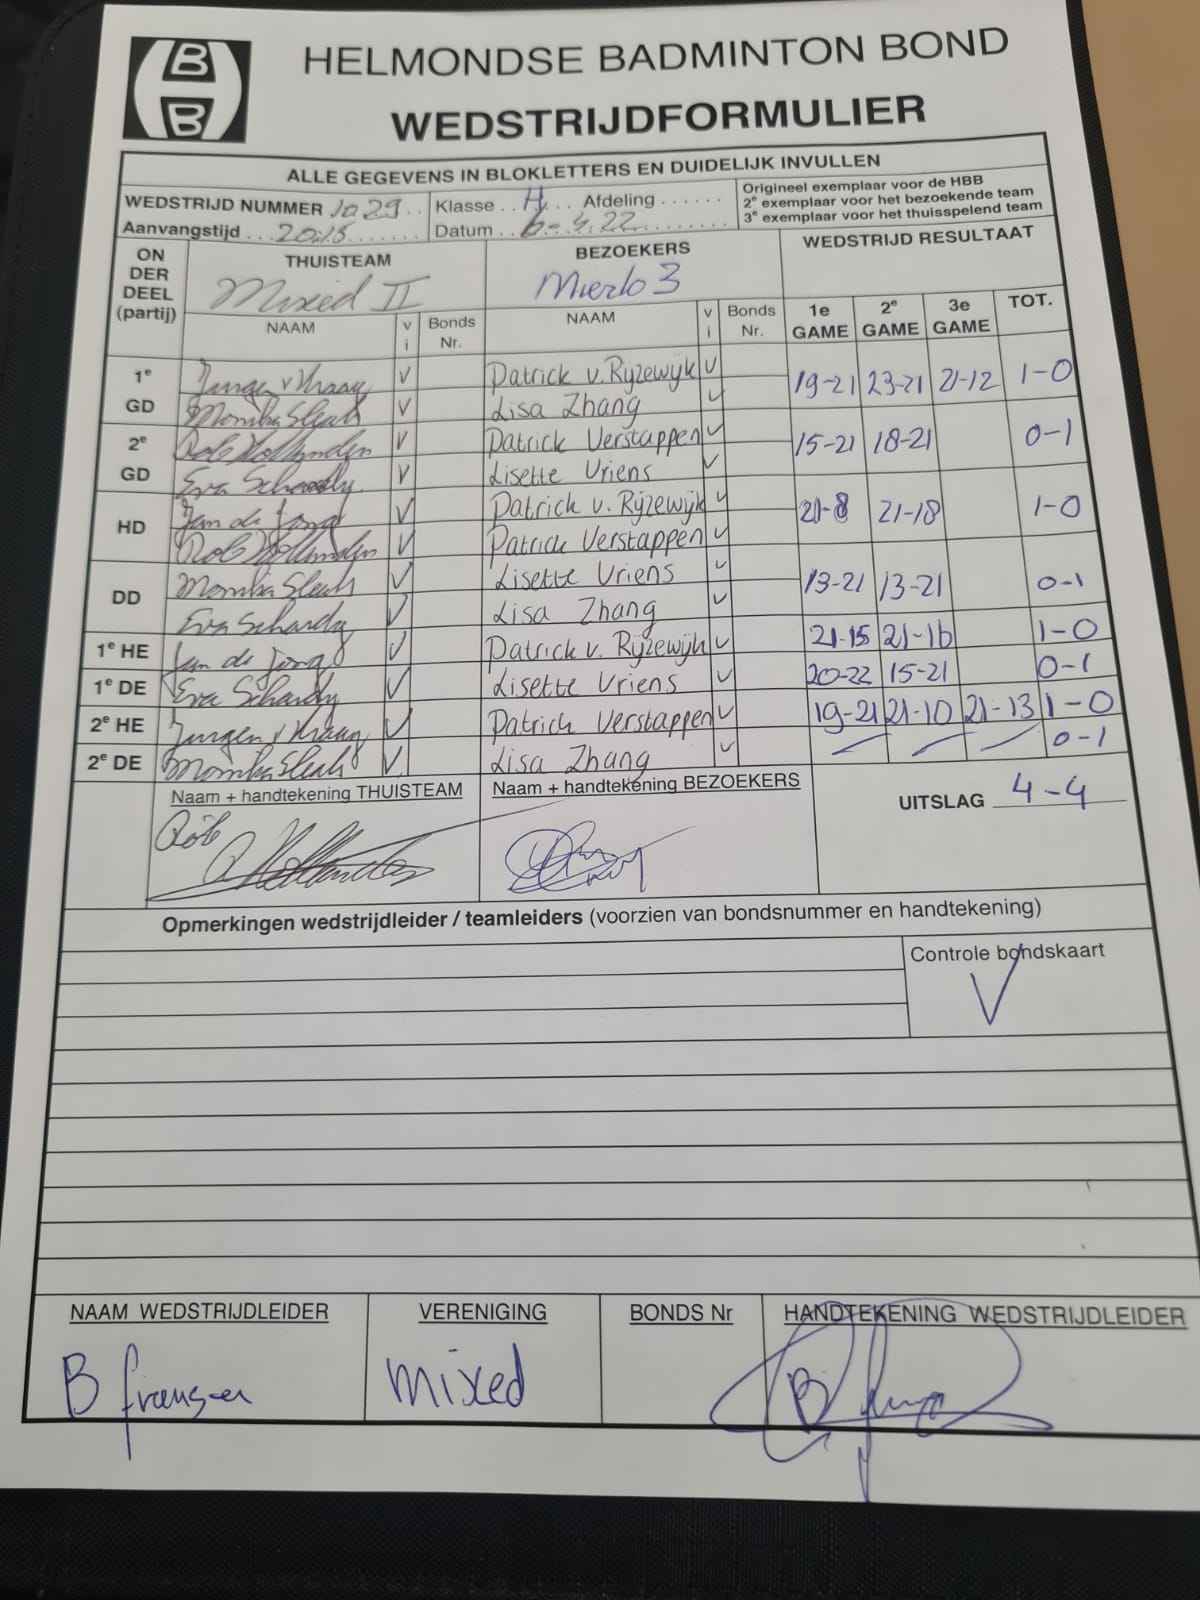 B
B
HELMONDSE BADMINTON BOND
WEDSTRIJDFORMULIER
ALLE GEGEVENS IN BLOKLETTERS EN DUIDELIJK INVULLEN
WEDSTRIJD NUMMER 1029 Klasse H Afdeling
Aanvangstijd 20:15 Datum 6-4.22
Origineel exemplaar voor de HBB
2e exemplaar voor het bezoekende team
3e exemplaar voor het thuisspelend team
ON DER DEEL (partij) THUISTEAM BEZOEKERS WEDSTRIJD RESULTAAT
Mixed II Mierlo 3
NAAM vi Bonds Nr. NAAM vi Bonds Nr. 1e GAME 2e GAME 3e GAME TOT.
1e GD Jurgen v Kraay V Patrick v. Rijzewijk V 19-21 23-21 21-12 1-0
Monika V Lisa Zhang V
2e GD Rob Hollanden V Patrick Verstappen V 15-21 18-21 0-1
Eva Schardy V Lisette Vriens V
HD Jan de Jong V Patrick v. Rijzewijk V 21-8 21-18 1-0
Rob Hollanden V Patrick Verstappen V
DD Monika V Lisette Vriens V 13-21 13-21 0-1
Eva Schardy V Lisa Zhang V
1e HE Jan de Jong V Patrick v. Rijzewijk V 21-15 21-16 1-0
1e DE Eva Schardy V Lisette Vriens V 20-22 15-21 0-1
2e HE Jurgen v Kraay V Patrick Verstappen V 19-21 21-10 21-13 1-0
2e DE Monika V Lisa Zhang V 0-1
Naam + handtekening THUISTEAM Naam + handtekening BEZOEKERS UITSLAG 4-4
Rob
Opmerkingen wedstrijdleider / teamleiders (voorzien van bondsnummer en handtekening)
Controle bondskaart
V
NAAM WEDSTRIJDLEIDER VERENIGING BONDS Nr HANDTEKENING WEDSTRIJDLEIDER
B fransen mixed